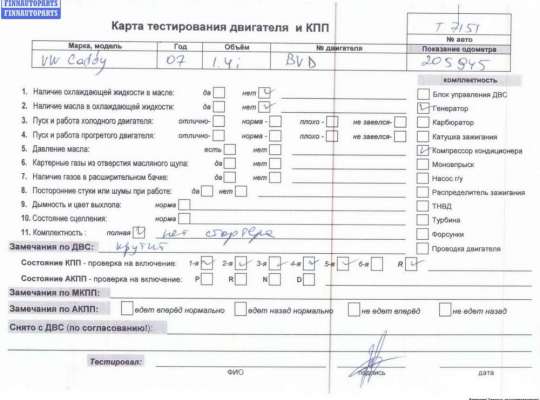 FINNAUTOPARTS
FINNAUTOPARTS
Карта тестирования двигателя и КПП
T 7151
№ авто
Марка, модель Год Объём № двигателя Показание одометра
VW Caddy 07 1.4i BUD 205945
комплектность
1. Наличие охлаждающей жидкости в масле: да нет
Блок управления ДВС
2. Наличие масла в охлаждающей жидкости: да нет
Генератор
3. Пуск и работа холодного двигателя: отлично- норма - плохо - не завелся-
Карбюратор
4. Пуск и работа прогретого двигателя: отлично- норма - плохо - не завелся-
Катушка зажигания
5. Давление масла: есть нет
Компрессор кондиционера
6. Картерные газы из отверстия масляного щупа: да нет
Моновпрыск
7. Наличие газов в расширительном бачке: да нет
Насос г/у
8. Посторонние стуки или шумы при работе: да нет
Распределитель зажигания
9. Дымность и цвет выхлопа: норма
ТНВД
10. Состояние сцепления: норма
Турбина
11. Комплектность : полная нет стартера
Форсунки
Замечания по ДВС: крутит
Проводка двигателя
Состояние КПП - проверка на включение: 1-я 2-я 3-я 4-я 5-я 6-я R
Состояние АКПП - проверка на включение: P R N D
Замечания по МКПП:
Замечания по АКПП: едет вперёд нормально едет назад нормально не едет вперёд не едет назад
Снято с ДВС (по согласованию!):
Тестировал:
ФИО подпись дата